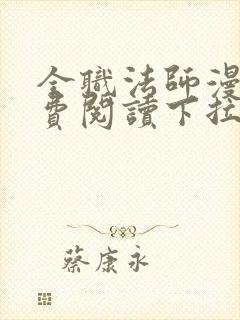 全職法師漫
費閱讀下拉
蔡康永